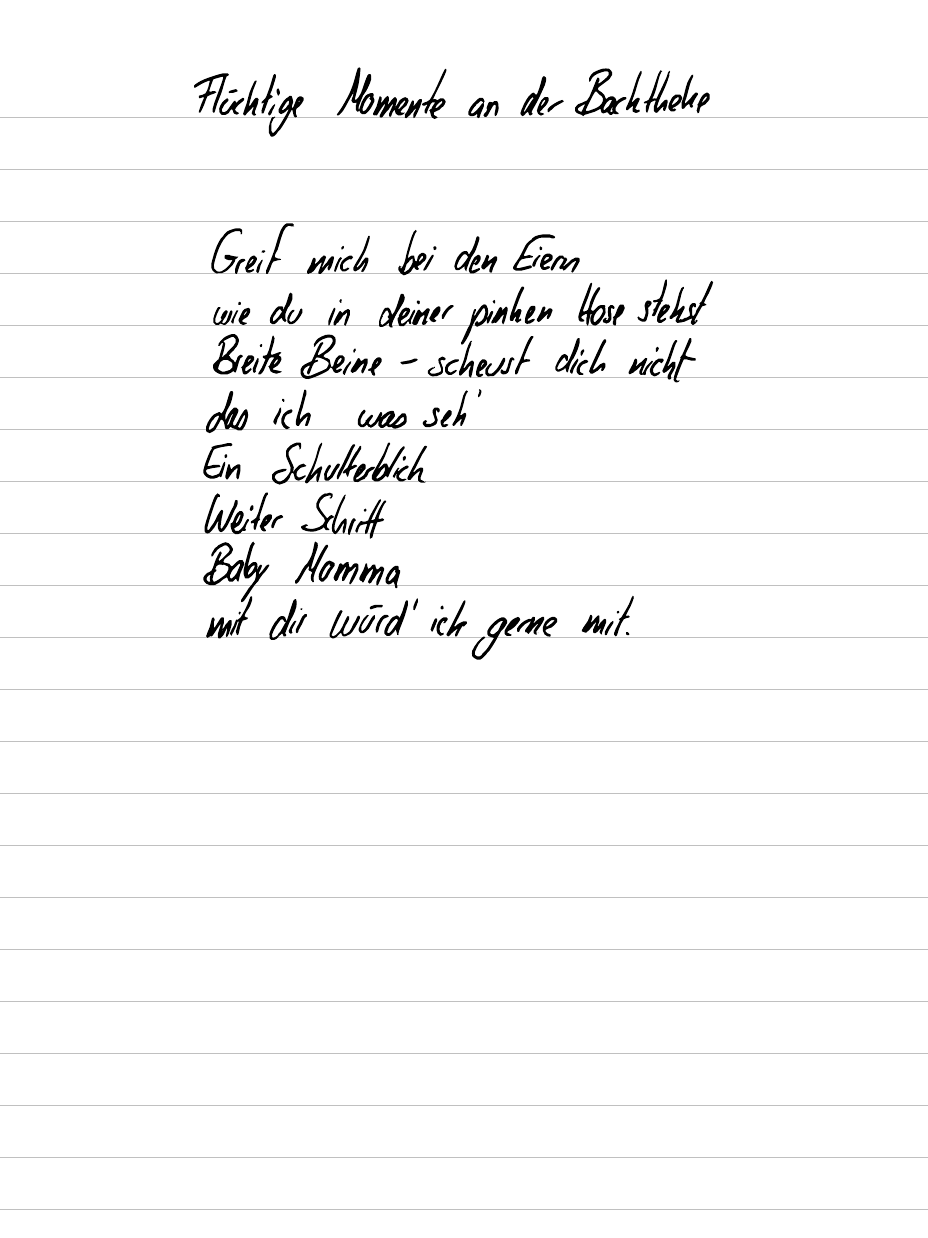 Flüchtige Momente an der Backtheke
Greif mich bei den Eiern
wie du in deiner pinken Hose stehst
Breite Beine – scheust dich nicht
das ich was seh'
Ein Schulterblick
Weiter Schritt
Baby Momma
mit dir würd' ich gerne mit.